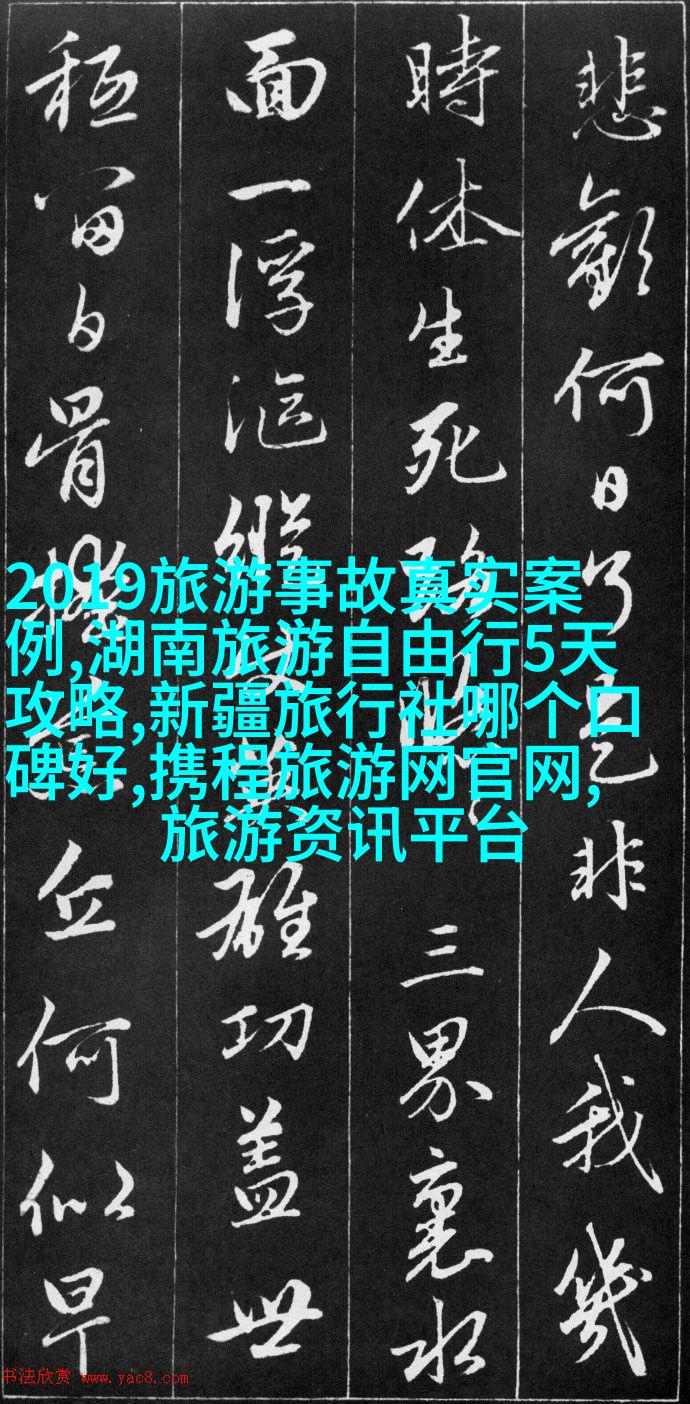 悲歡何日了是非人我幾
時休生死路三界裏水
面一浮漚縱英雄功盖世
秪留白骨丘何似早
2019旅游事故真实案
例,湖南旅游自由行5天
攻略,新疆旅行社哪个口
碑好,携程旅游网官网,
旅游资讯平台
书法欣赏 www.yac8.com